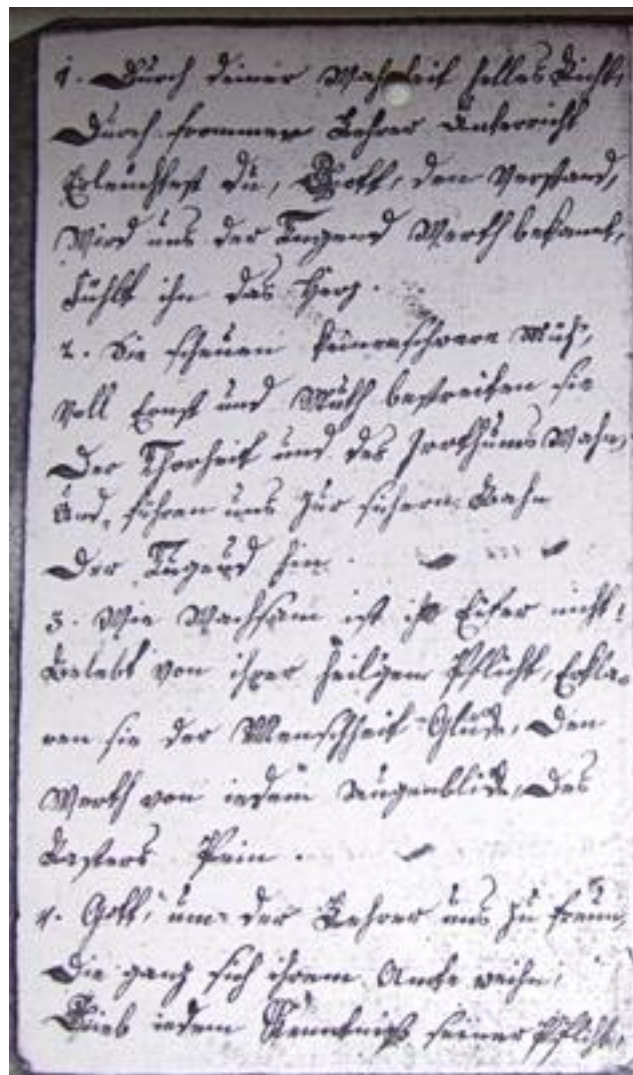 1. Durch deiner Wahrheit helles Licht,
Durch frommer Lehrer Unterricht
Erleuchtest du, Gott, den Verstand,
Wird uns der Tugend Werth bekannt,
Fühlt ihn das Herz.
2. Sie scheuen keine schwere Müh,
Voll Ernst und Muth bestreiten sie
Der Thorheit und des Irrthums Wahn,
Und führen uns zur sichern Bahn
Der Tugend hin.
3. Wie wachsam ist ihr Eifer nicht!
Belebt von ihrer heiligen Pflicht, Erklä-
ren sie der Menschheit Glück, Den
Werth von iedem Augenblick, Des
Lasters Pein.
4. Gott, um der Lehrer uns zu freun,
Die ganz sich ihrem Amte weihn,
Gieb iedem Kenntniß seiner Pflicht,